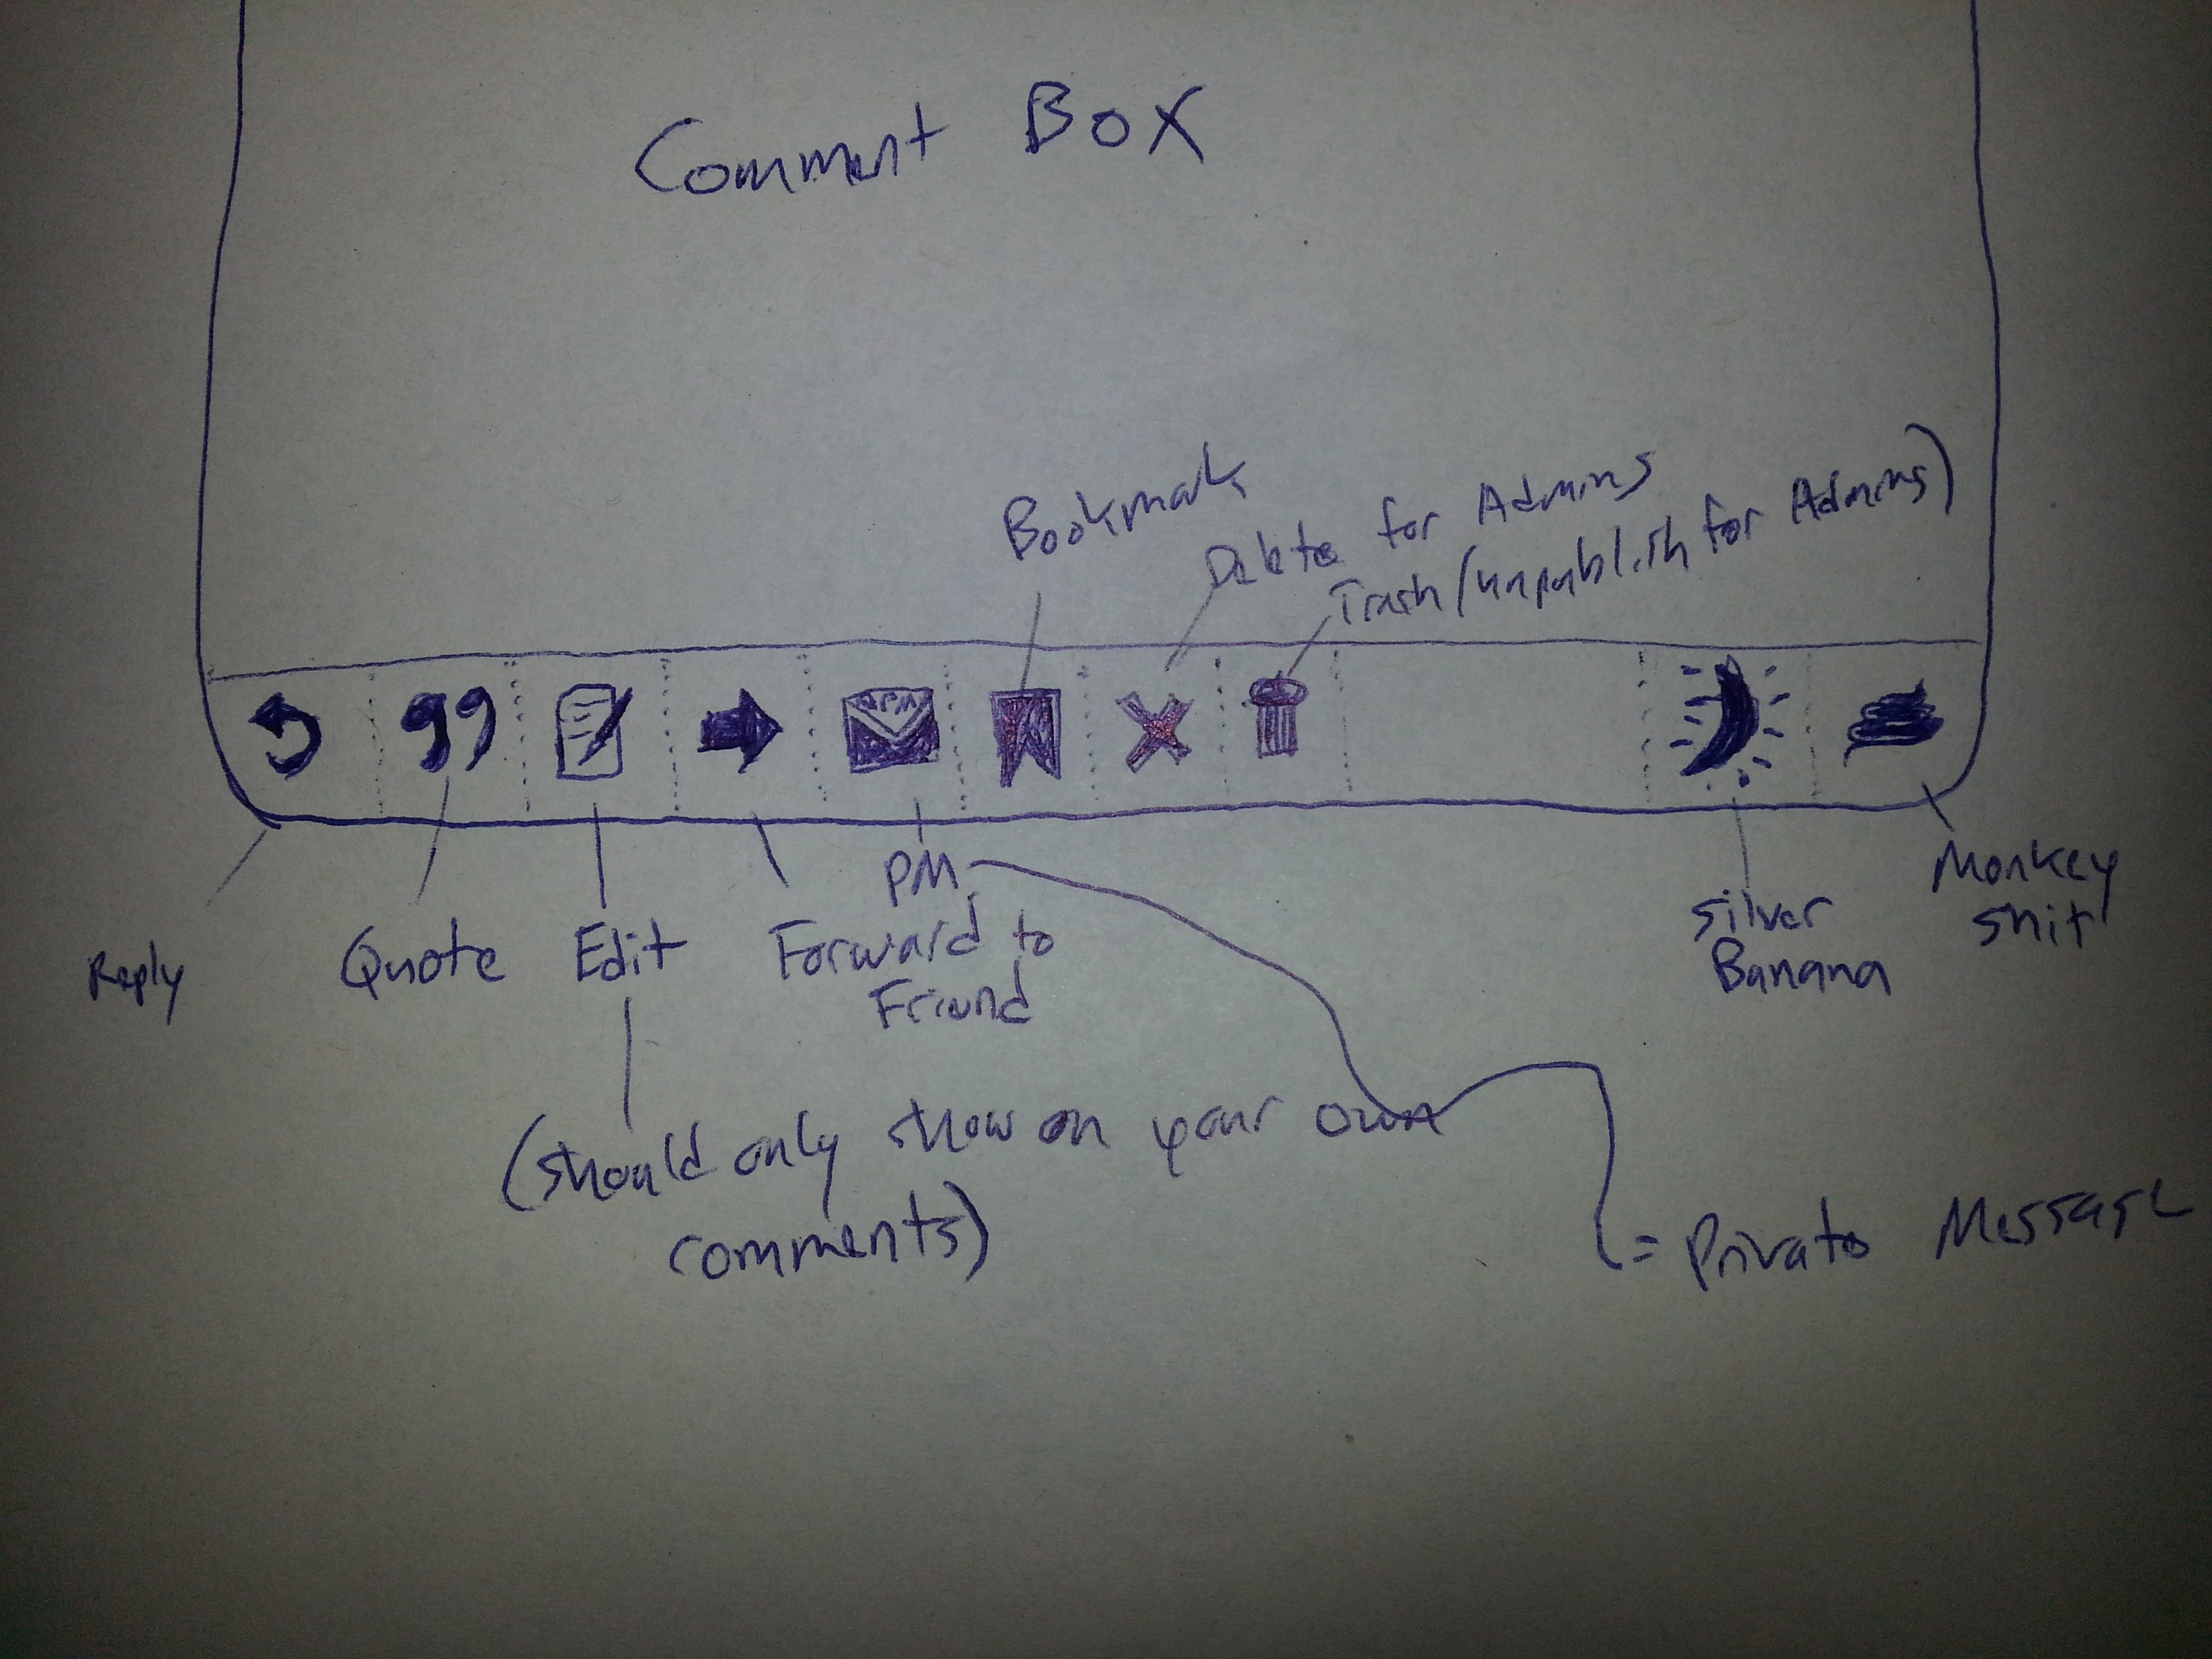 Comment Box
Bookmark
Delete for Admins
Trash (unpublish for Admins)
99
PM
Reply
Quote
Edit
Forward to
Friend
Silver
Banana
Monkey
shit
(should only show on your own
comments)
= Private Message